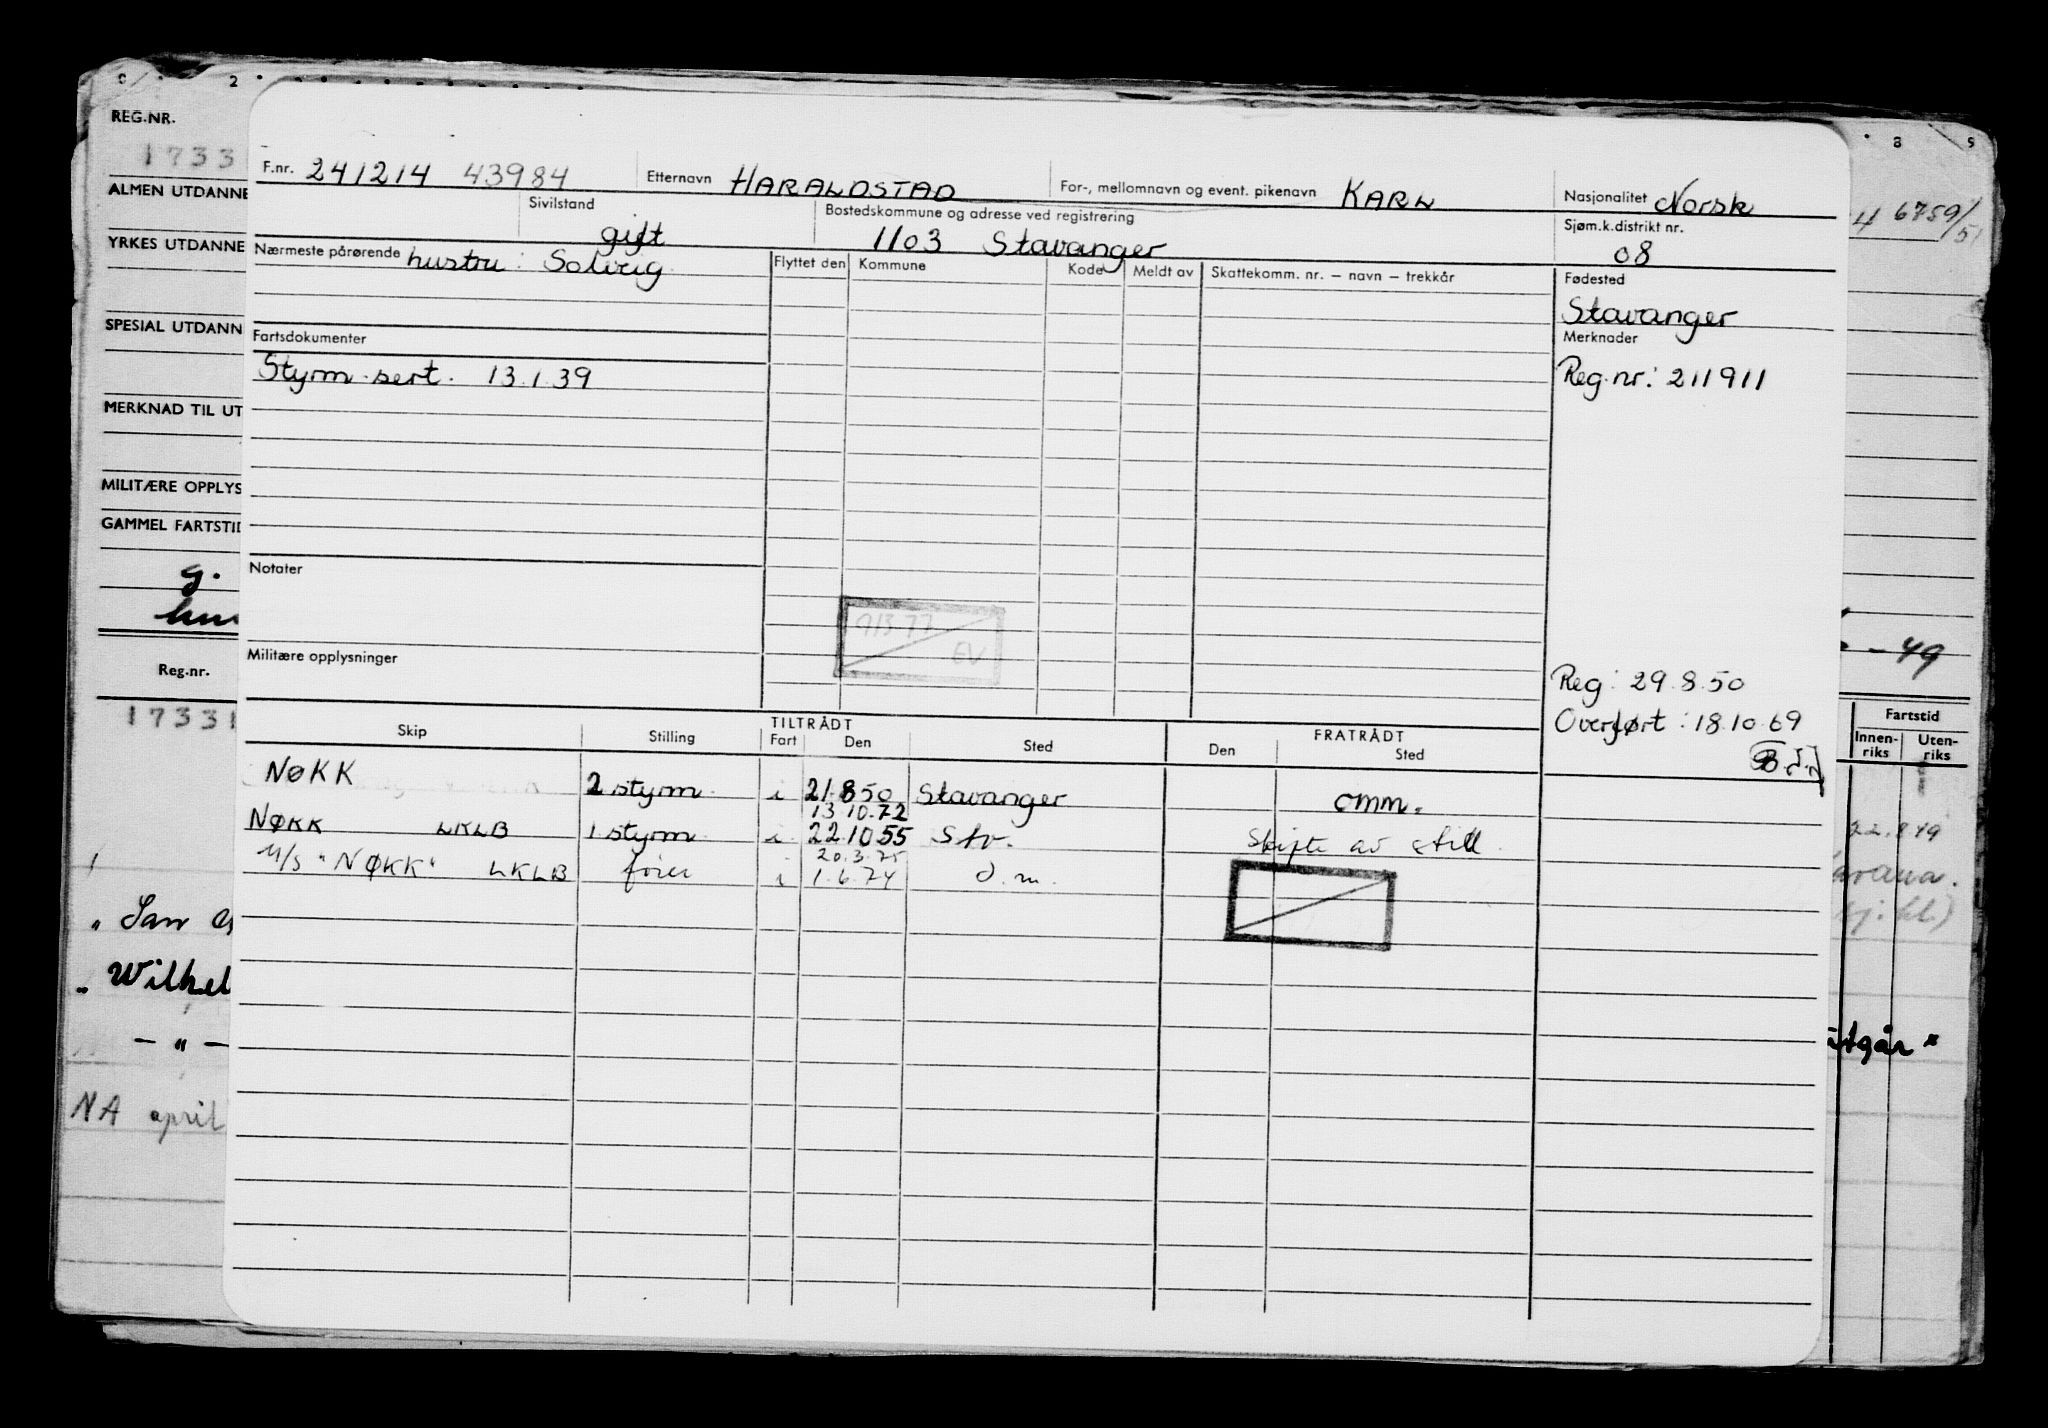 REG.NR.
1733
ALMEN UTDANNE
YRKES UTDANNE
SPESIAL UTDANN
MERKNAD TIL UT
MILITÆRE OPPLYS
GAMMEL FARTSTID
g.
Reg.nr.
17331
" San
" Wilhel
- " -
NA april
F.nr. 241214 43984 Etternavn HARALDSTAD For-, mellomnavn og event. pikenavn KARL Nasjonalitet Norsk
Sivilstand gift Bostedskommune og adresse ved registrering 1103 Stavanger Sjøm.k.distrikt nr. 08
Nærmeste pårørende hustru: Solveig Flyttet den Kommune Kode Meldt av Skattekomm. nr. – navn – trekkår Fødested
Stavanger
Fartsdokumenter Merknader
Styrm.sert. 13.1.39 Reg.nr.: 211911
Notater
913.77
EV
Militære opplysninger
Reg: 29.8.50
Overført: 18.10.69
Skip Stilling TILTRÅDT Fart Den Sted FRATRÅDT Den Sted
NØKK 2 styrm. i 21.8.50 Stavanger omm.
13.10.72
NØKK LKLB 1 styrm. i 22.10.55 Stv. Skifte av still.
20.3.75
M/S "NØKK" LKLB fører i 1.6.74 d.m.
6759/51
- 49
Fartstid
Innen-riks Uten-riks
22.8.49
utgår"